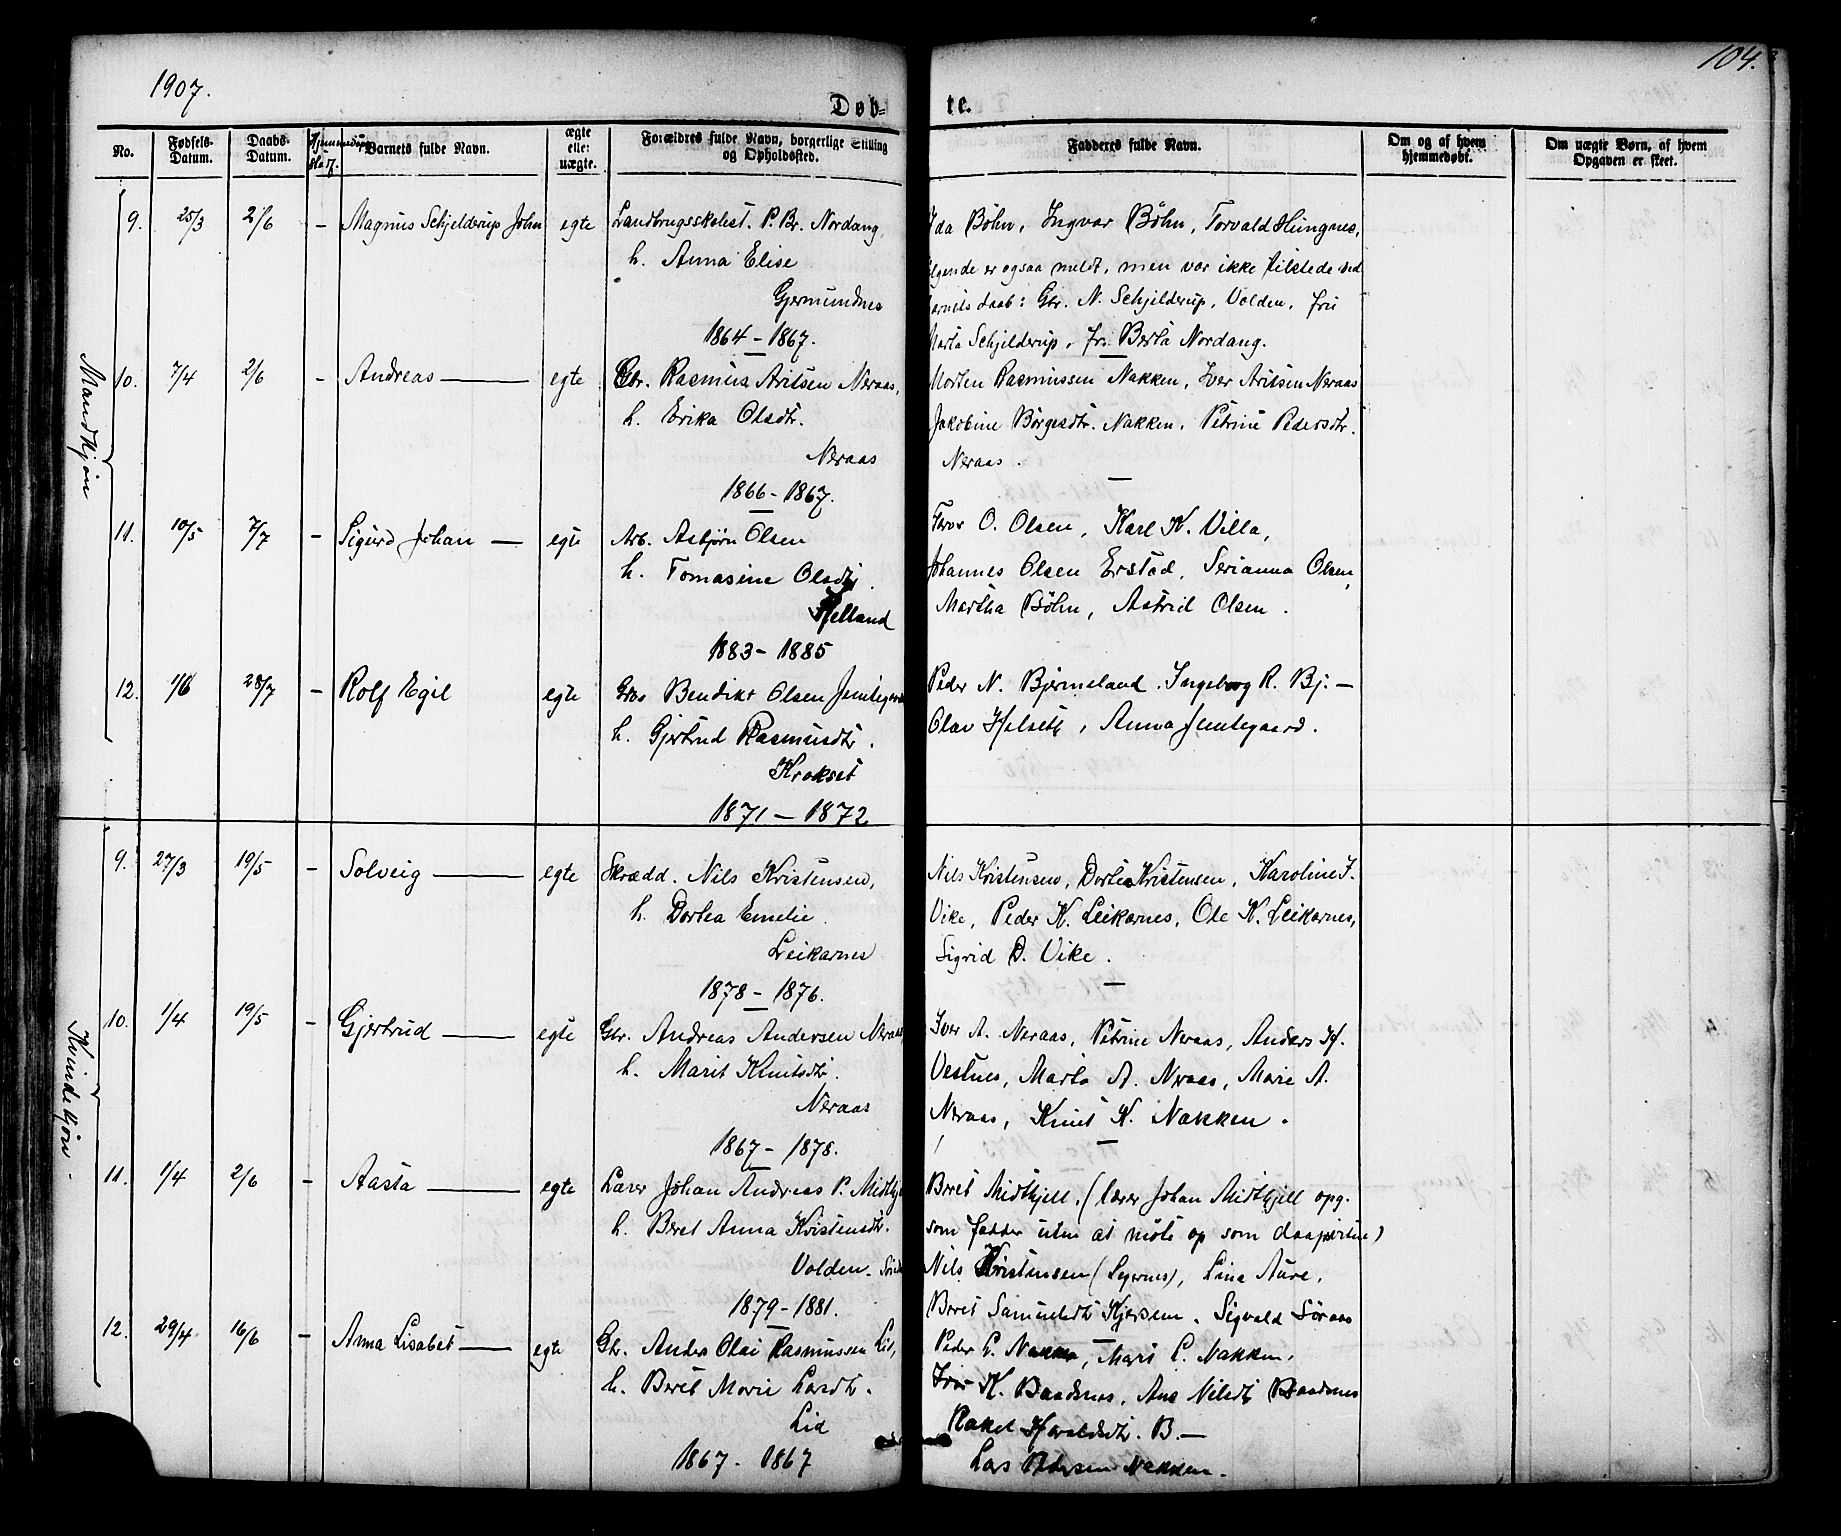 1907.
104.
Døb-
te.
No.
Fødsels-Datum.
Daabs-Datum.
Barnets fulde Navn.
ægte eller uægte.
Forældres fulde Navn, borgerlige Stilling og Opholdssted.
Fadderes fulde Navn.
Om og af hvem hjemmedøbt.
Om uægte Børn, af hvem Opgaven er skeet.
Mandkjøn
9. 25/3 2/6 – Magnus Schjelderup John egte Landbrugsskolest. P. Br. Nordang,
h. Anna Elise
Gjermundnes
1864 – 1867.
Ida Bøhn, Ingvar Bøhn, Torvald Hungnes,
ølgende er ogsaa meldt, men var ikke tilstede ved
barnets daab: Gbr. N. Schjelderup, Volden, fru
Marta Schjelderup, frk. Berta Nordang.
10. 7/4 2/6 – Andreas — egte Gbr. Rasmus Aritsen Neraas,
h. Erika Olsdtr.
Neraas
1866 – 1867.
Morten Rasmussen Nakken, Iver Aritsen Neraas
Jakobine Børgesdtr. Nakken, Petrine Pedersdtr.
Neraas.
11. 10/5 7/7 – Sigurd Johan — egte Arb. Asbjørn Olsen
h. Tomasine Olsdtr.
Helland
1883 – 1885
O. Olsen, Karl K. Villa,
Johannes Olsen Erstad, Serianna Olsen,
Martha Bøhn, Astrid Olsen.
12. 1/6 28/7 – Rolf Egil egte Gbr Bendikt Olsen Jemtegaard
h. Gjertrud Rasmusdtr.
Krokset
1871 – 1872
Peder N. Bjermeland. Ingeborg R. Bj. –
Olav Helseth, Anna Jemtegaard.
Kvindekjøn.
9. 27/3 19/5 – Solveig — egte Skrædd. Nils Kristensen,
h. Dortea Emelie.
Leikarnes
1878 – 1876.
Nils Kristensen, Dortea Kristensen, Karoline I.
Vike, Peder K. Leikarnes, Ole K. Leikarnes,
Sigrid D. Vike.
10. 1/4 19/5 – Gjertrud — egte Gbr. Andreas Andersen Neraas
h. Marit Knutsdtr.
Neraas
1867 – 1878.
Iver A. Neraas, Petrine Neraas, Anders H.
Vestnes, Marta A. Neraas, Marie A.
Neraas, Knut K. Nakken.
11. 1/4 2/6 – Aasta — egte Lærer Johan Andreas P. Midtkj
h. Beret Anna Kristensdtr.
Volden.
1879 – 1881.
Beret Midtkjell, (lærer Johan Midtkjell opg.
som fadder uten at møte op som
Nils Kristensen, Lina Aure,
Beret Samuelsdtr Kjersem, Sigvald Søraas
12. 29/4 16/6 – Anna Lisabet — egte Gbr. Anders Olai Rasmussen Lid,
h. Beret Marie Larsdtr.
Lid
1867 – 1867
Peder L. Nakken, Mari L. Nakken,
Iver K. Baadsnes, Ane Nilsdtr Baadsnes
Rakel Haraldsdtr. B. —
Lars Pedersen Nakken.